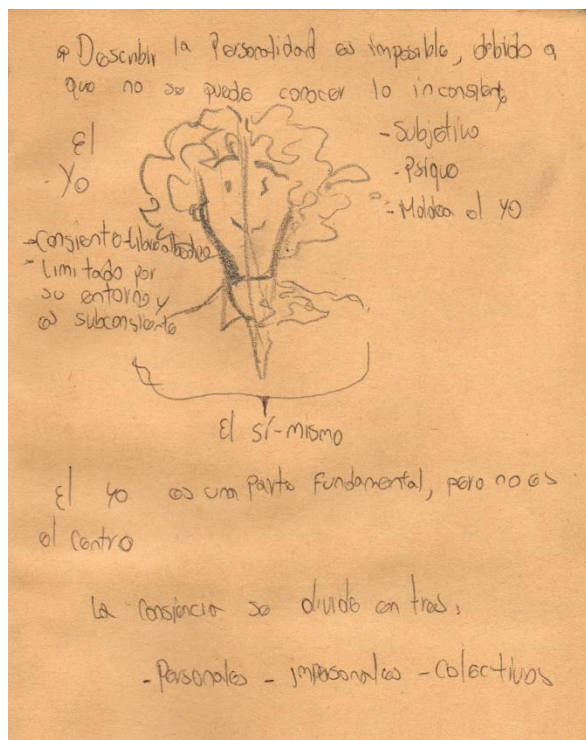 * Describir la Personalidad es imposible, debido a
que no se puede conocer lo inconsiente
El
- Yo
- Consiente-Libre albedrio
- Limitado por
su entorno y
es subconsiente
- Subjetivo
- Psique
- Moldea el yo
El sí-mismo
El yo es una parte fundamental, pero no es
el centro
La consiencia se divide en tres:
- Personales - impersonales - Colectivos